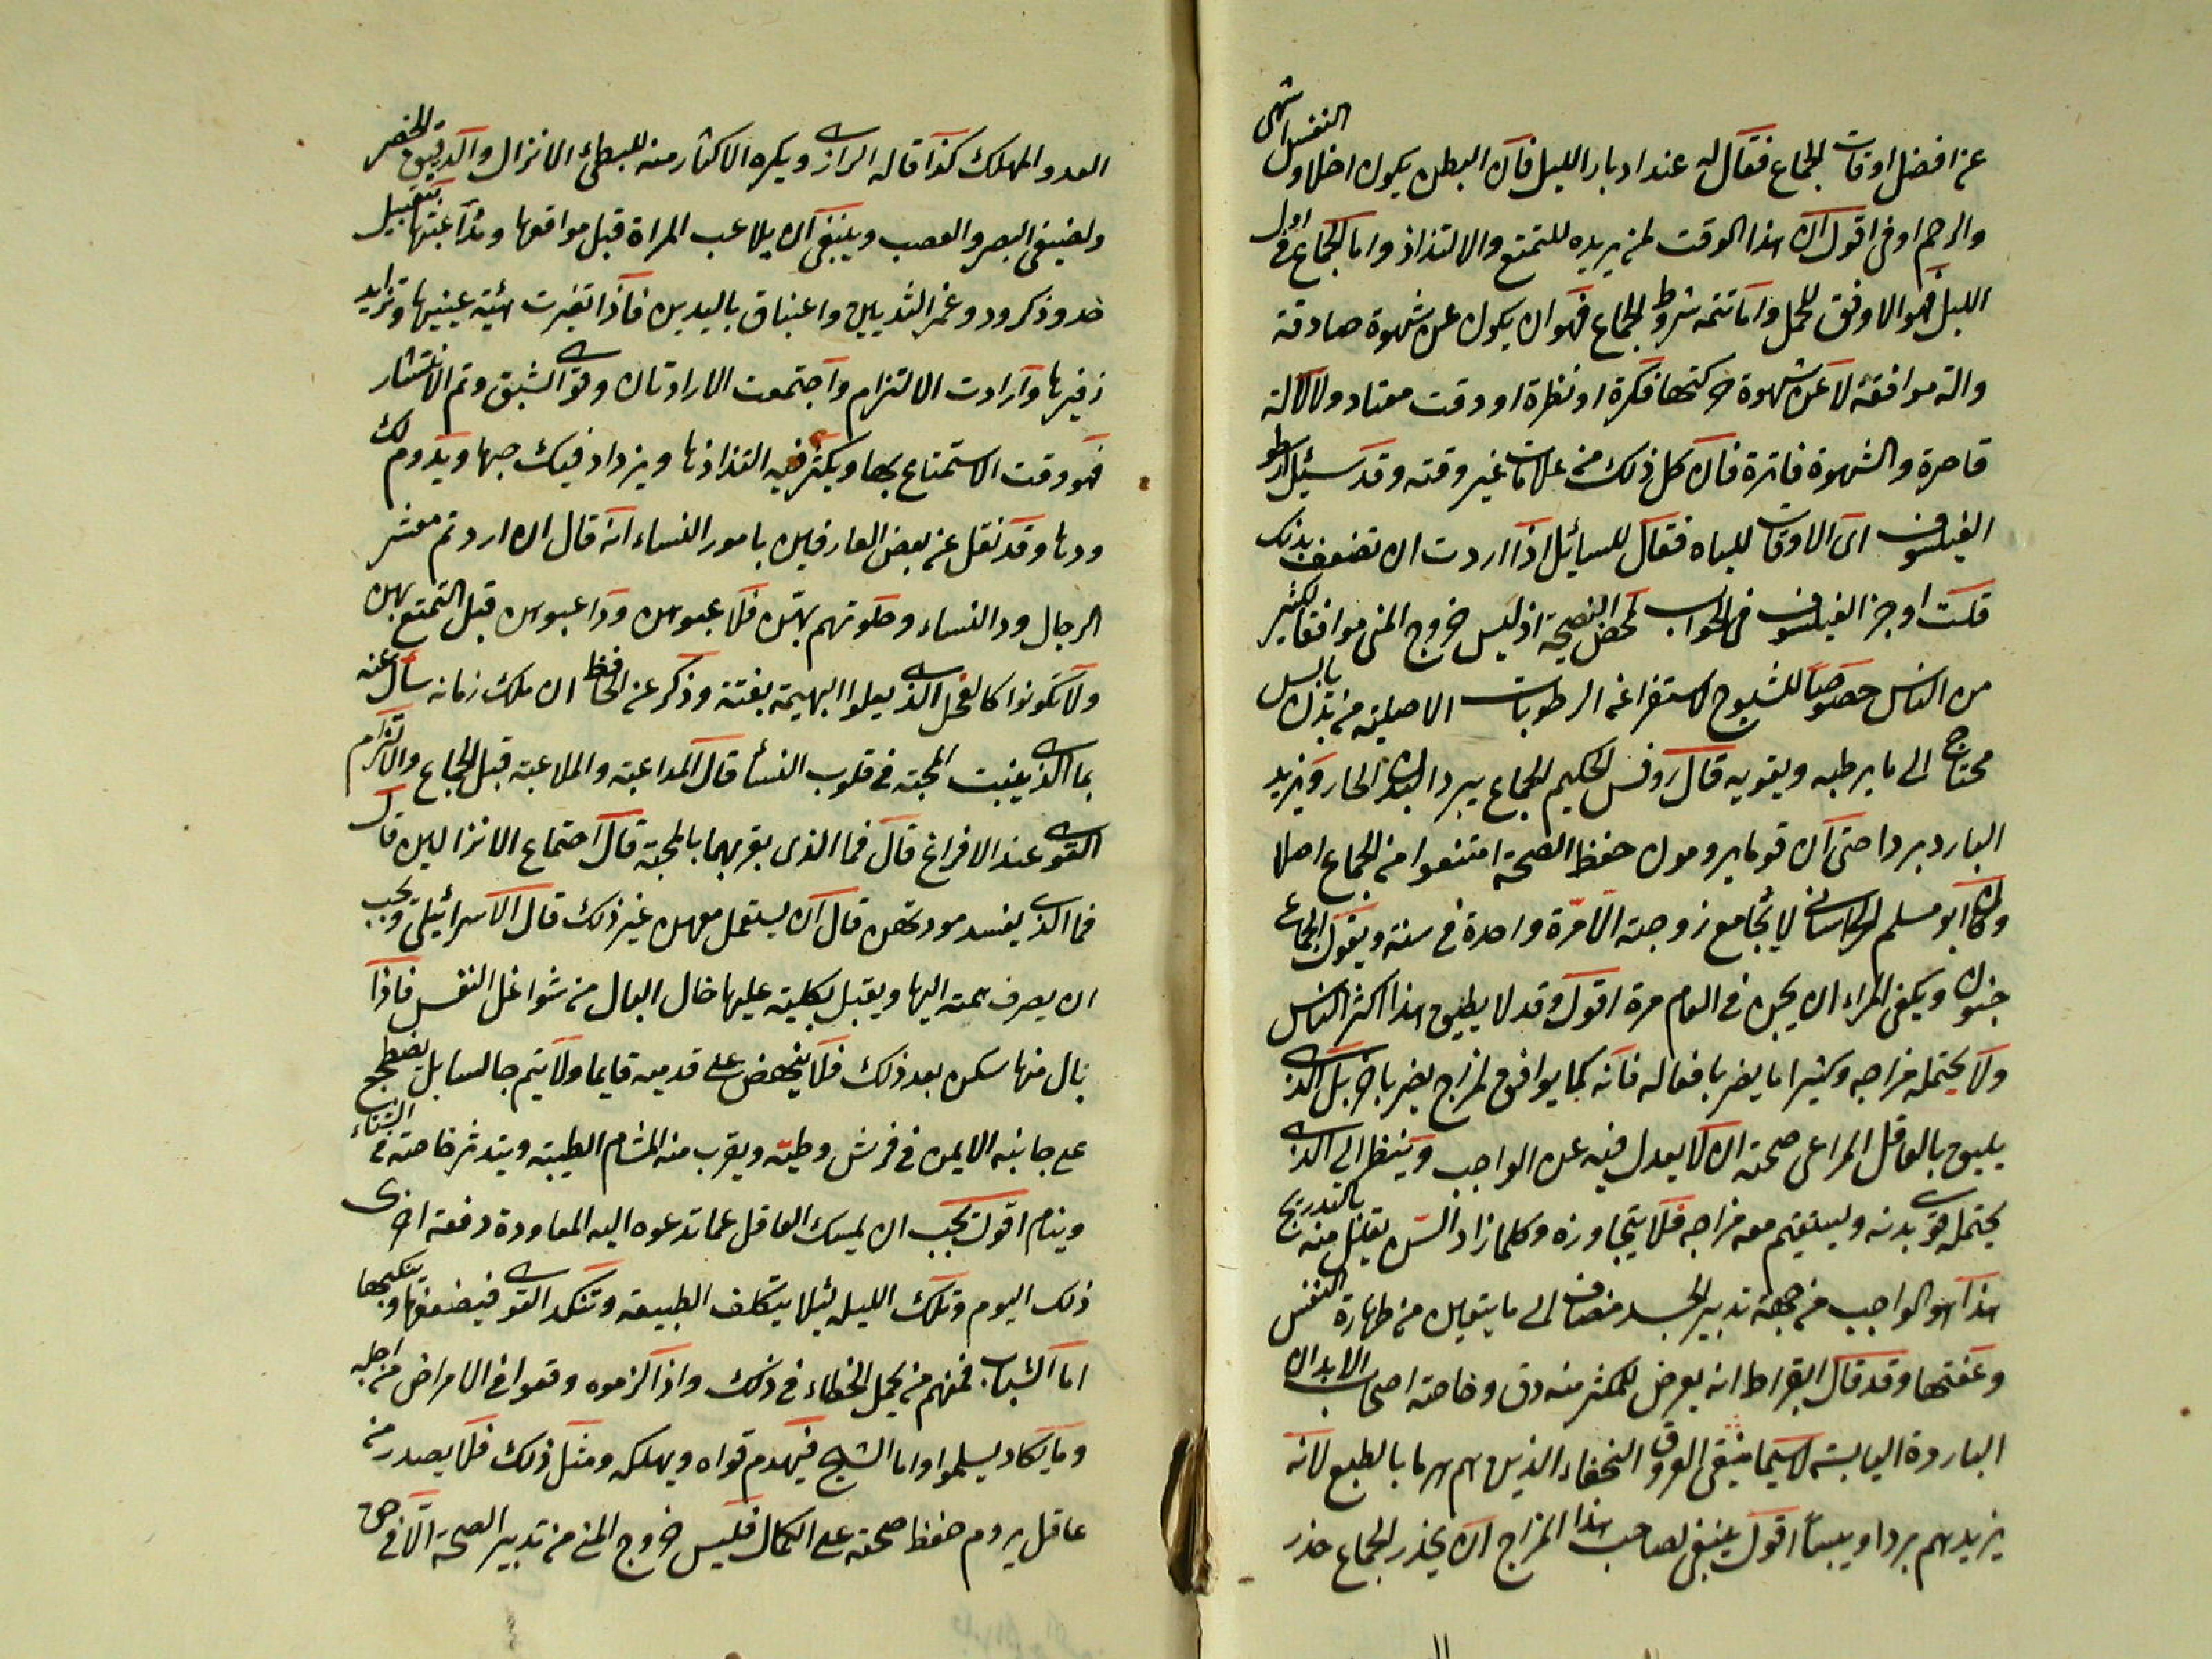 عن افضل اوقات الجماع فقال له عند ادبار الليل فان البطن يكون اخلا والنفس اشهى
والرحم اوفى اقول ان هذا الوقت لمن يريده للتمتع والالتذاذ واما الجماع في اول
الليل فهو الاوفق للحمل واما تتمه شروط الجماع فهو ان يكون عن شهوة صادقة
والة موافقة لا عن شهوة حركتها فكرة او نظرة او وقت معتاد ولا الالة
قاصرة والشهوة فاترة فان كل ذلك من علامات غير وقته وقد سئيل ارسطو
الفيلسوف اى الاوقات للباه فقال للسائيل اذا اردت ان تضعف بدنك
قلت اوجز الفيلسوف في الجواب لمحض النصيحة اذ ليس خروج المني موافقا لكثير
من الناس خصوصا للشيوخ لاستفراغه الرطوبات الاصلية من بدن يابس
محتاج الى ما يرطبه ويقويه قال روفس الحكيم الجماع يبرد البدن الحار ويزيد
البارد بردا حتى ان قوما يرومون حفظ الصحة امتنعوا من الجماع اصلا
وكان ابو مسلم الخراساني لا يجامع زوجته الا مرة واحدة في سنة ويقول الجماع
جنون ويكفي المراء ان يجن في العام مرة اقول وقد لا يطيق هذا اكثر الناس
ولا يحتمله مزاجه وكثيرا ما يضر بافعاله فانه كما يوافق لمزاج يضر باخر بل الذي
يليق بالعاقل المراعى صحته ان لا يعدل فيه عن الواجب وينظر الى الذي
يحتمله قوى بدنه ويستقيم معه مزاجه فلا يتجاوزه وكلما زاد السن يقلل منه بالتدريج
هذا هو الواجب من جهة تدبير الجسد مضاف الى ما يتعين من طهارة النفس
وعفتها وقد قال ابقراط انه يعرض للمكثر منه دق وخاصة اصحاب الابدان
الباردة اليابسة لاسيما ضيقي العروق النحفاء الذين هم هرما بالطبع لانه
يزيدهم بردا ويبسا اقول ينبغي لصاحب هذا المزاج ان يحذر الجماع حذر
العدو المهلك كذا قاله الرازي ويكره الاكثار منه للبطيء الانزال والدقيق الخصر
ولضعيفي البصر والعصب وينبغي ان يلاعب المراة قبل مواقعها ومداعبتها بتقبيل
خد وذكر ود وغمز الثديين واعتناق باليدين فاذا تغيرت هيئة عينيها وتزايد
زفيرها وارادت الالتزام واجتمعت الارادتان وقوى الشبق وتم الانتشار
فهو وقت الاستمتاع بها ويكثر فيه التذاذها ويزداد فيك حبها ويدوم لك
ودها وقد نقل عن بعض العارفين بامور النساء انه قال ان اردتم معشر
الرجال ود النساء وخلوتهم بهن فلاعبوهن وداعبوهن قبل التمتع بهن
ولا تكونوا كالفحل الذي يعلوا البهيمة بغتة وذكر عن الحافظ ان ملك زمانه سأل عنه
بما الذي ينبت المحبة في قلوب النسأ قال المداعبة والملاعبة قبل الجماع والالتزام
القوى عند الافراغ قال فما الذى يقربهما بالمحبة قال اجتماع الانزالين قال
فما الذي يفسد مودتهن قال ان يستعمل معهن غير ذلك قال الاسرائيلي ويجب
ان يصرف همته اليها ويقبل بكليته عليها خال البال من شواغل النفس فاذا
نال منها سكن بعد ذلك فلا ينهض على قدميه قايما ولا يتم جالسا بل يضطجع
على جانبه الايمن في فرش وطيّة ويقرب منه المشام الطيبة ويتدثر خاصة في الشتاء
وينام اقول يجب ان يمسك العاقل عما تدعوه اليه المعاودة دفعة اخرى
ذلك اليوم وتلك الليله ليئلا يتكلف الطبيعة وتنكد القوى فيضعفها وينكيها
اما الشباب فمنهم من يحمل الخطاء في ذلك واذا لزموه وقعوا في الامراض من اجله
وما يكاد يسلموا واما الشيخ فيهدم قواه ويهلكه ومثل ذلك فلا يصدر من
عاقل يروم حفظ صحته على الكمال فليس خروج المني من تدبير الصحة الا في حق